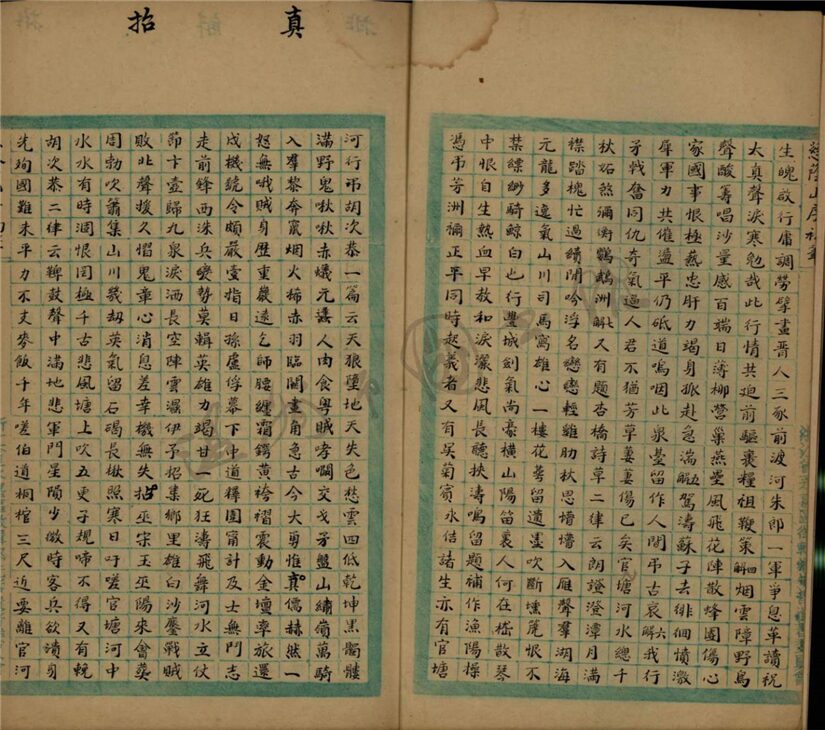 生魄啟行庸調勞擘畫晋人三豕前渡河朱郎一軍爭息革讀祝
太真聲淚寒勉哉此行情共迫前驅裹糧祖鞭策解四烟雲障野烏
聲酸籌唱沙量感百端日薄柳營巢燕壘風飛花陣散蜂團傷心
家國事恨極蓋忠肝力竭身孤赴急湍解五駕濤蘇子去徘徊憤激
犀軍力共催盪平仍砥道嗚咽此泉臺留作人間弔古哀解六我行
矛戟奮同仇奇氣逼人君不猶芳草萋萋傷已矣官塘河水總千
秋妬煞禰衡鸚鵡洲解又有題杏橋詩草二律云朗證澄潭月滿
襟踏槐忙過績閒吟浮名戀戀輕雞肋秋思懵懵入雁聲羣湖海
元龍多逸氣山川司馬寓雄心一樓花萼留遺墨吹斷壎篪恨不
禁縹緲騎鯨白也行豐城劍氣尚豪橫山陽笛裏人何在嵇散琴
中恨自生熱血早教和淚灑悲風長聽挾濤鳴留題補作漁陽操
憑弔芳洲禰正平同時起義者又有吴菊賓水佶諸生亦有官塘
真
招
河行弔胡次恭一篇云天狼墮地天失色愁雲四低乾坤黑髑髏
滿野鬼啾啾赤蟻元蠭人肉食粵賊哮㘚交戈矛盤山繡嶺萬騎
入羣黎奔竄烟火稀赤羽臨關畫角急古今大勇惟真儒赫然一
怒無哦賊身歷重巖遠乞師腰纏霜鍔黄袴褶震動金壇率旅還
成機號令頗嚴壹指日孫盧俘幕下中道釋圍甯計及士無鬥志
走前鋒西洙兵變勢莫輯英雄力竭甘一死狂濤飛舞河水立仗
節卞壼歸九泉淚洒長空陣雲濕伊予招集鄉里雄白沙鏖戰賊
敗北聲援久慴鬼章心消息差幸機無失招巫宋玉巫陽來會葬
周勃吹簫集山川幾劫英氣留石碣長楸照寒日吁嗟官塘河中
水水有時涸恨罔極千古悲風塘上吹五更子規啼不得又有輓
胡次恭二律云鞞鼓聲中滿地悲軍門星隕少微時客兵欲潰身
先殉國難未平力不支麥飯千年嗟伯道桐棺三尺近要離官河